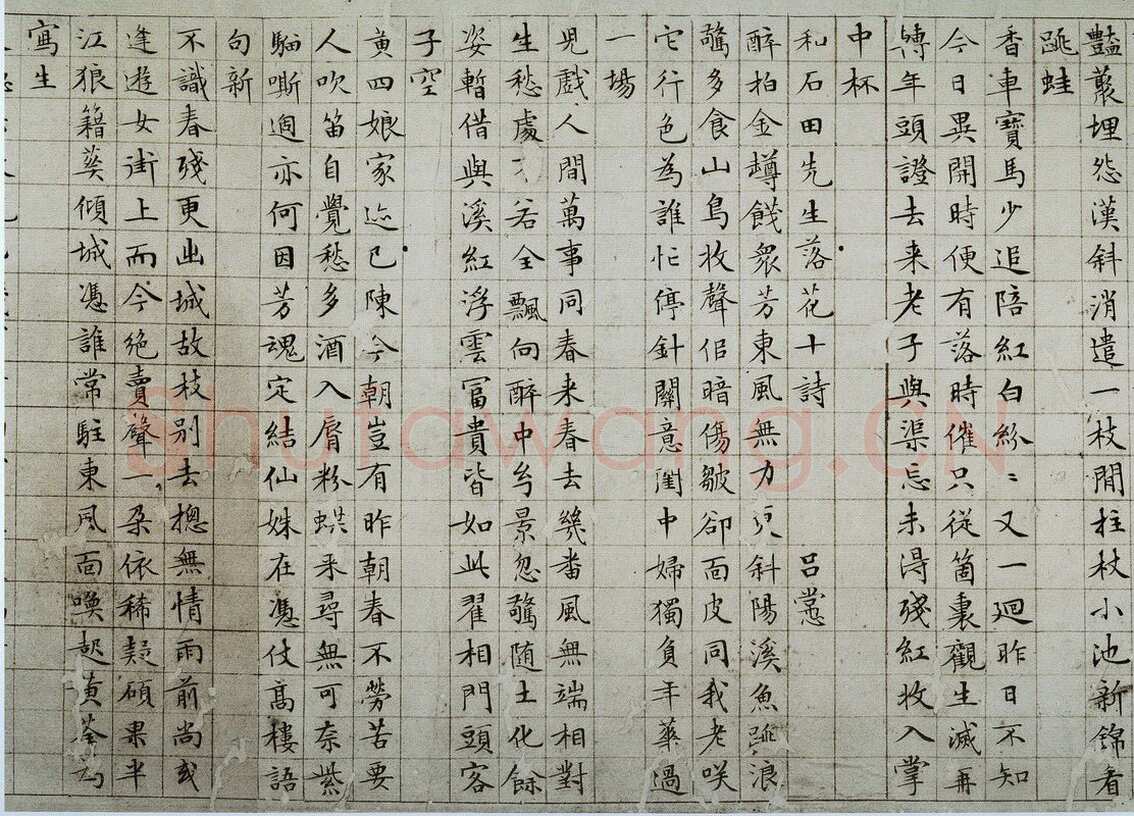 豔叢埋怨漢斜消遣一枝閒拄杖小池新錦看
跳蛙
香車寶馬少追陪紅白紛〻又一迴昨日不知
今日異開時便有落時催只從箇裏觀生滅再
轉年頭證去来老子與渠忘未得殘紅收入掌
中杯
和石田先生落花十詩 吕㦂
醉拍金罇餞衆芳東風無力斜陽溪魚跳浪
驚多食山鳥收聲佀暗傷皺卻面皮同我老咲
它行色為誰忙停針關意閨中婦獨負年華過
一場
児戲人間萬事同春来春去幾番風無端相對
生愁處若全飄向醉中兮景忽驚随土化餘
姿暫借與溪紅浮雲冨貴皆如此翟相門頭客
子空
黄四娘家迹已陳今朝豈有昨朝春不勞苦要
人吹笛自覺愁多酒入脣粉蜨来尋無可奈紫
騮嘶過亦何因芳魂定結仙姝在憑仗髙樓語
句新
不識春殘更出城故枝别去摠無情雨前尚或
逢遊女街上而今絶賣聲一朶依稀疑碩果半
江狼籍葵傾城憑誰常駐東風面喚起黄荃為
寫生
Shufawang.CN